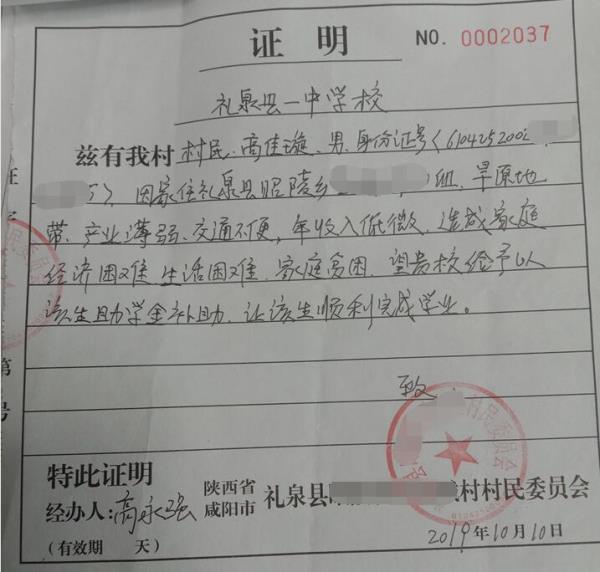 证 明
NO. 0002037
礼泉县一中学校
兹有我村村民、高佳璇、男、身份证号(6104252002
)、因家住礼泉县昭陵乡 组、旱原地
带、产业薄弱、交通不便，年收入低微、造成家庭
经济困难 生活困难、家庭贫困、望贵校给予以
该生助学金补助、让该生顺利完成学业。
致
特此证明
经办人:高永强
陕西省
咸阳市
礼泉县 村村民委员会
(有效期 天)
2019年10月10日
证
字
第
号
村民委员会